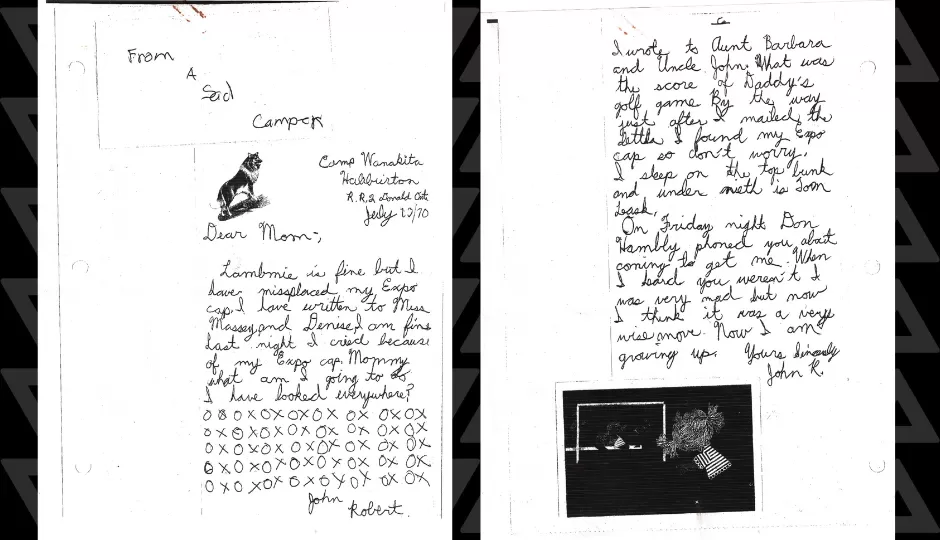 From
A
Sad
Camper
Camp Wanakita
Haliburton
R.R.2 Donald Ont
July 20/70
Dear Mom-,
Lambmie is fine but I
have missplaced my Expo
cap. I have written to Miss
Massey, and Denise, I am fine
Last night I cried because
of my Expo cap. Mommy
what am I going to do
I have looked everywhere?
O O O X O X O X O X O X O X O X
O X O X O X O X O X O X O X O X
O X O X O X O X O X O X O X O X
O X O X O X O X O X O X O X O X
O X O X O X O X O X O X O X O X
John
Robert.
I wrote to Aunt Barbara
and Uncle John. What was
the score of Daddy's
golf game By the way
just after I mailed the
letter I found my Expo
cap so don't worry.
I sleep on the top bunk
and under nieth is Tom
Leask.
On Friday night Don
Hambly phoned you about
coming to get me. When
I heard you weren't I
was very mad but now
I think it was a very
wise move. Now I am
growing up. Yours Sincerely
John R.